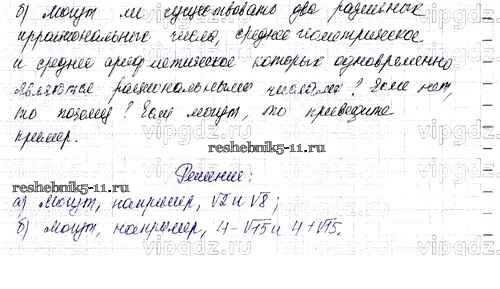 б) Могут ли существовать два различных
иррациональных числа, среднее геометрическое
и среднее арифметическое которых одновременно
являются рациональными числами? Если нет,
то почему? Если могут, то приведите
пример.
vipgdz.ru
reshebnik5-11.ru
Решение:
reshebnik5-11.ru
а) Могут, например, √2 и √8;
б) Могут, например, 4-√15 и 4+√15.